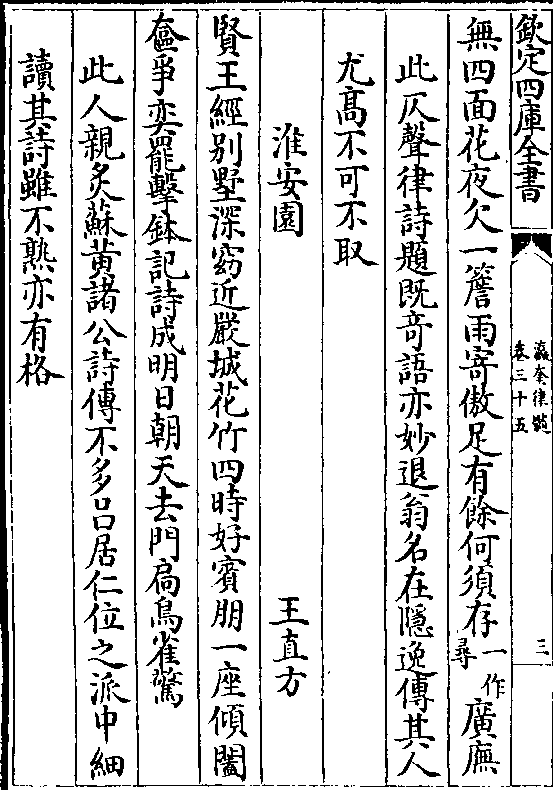 欽定四庫全書
瀛奎律髓
卷三十五
三
無四面花夜欠一簷雨寄傲足有餘何須存一作尋廣廡
此仄聲律詩題既竒語亦妙退翁名在隱逸傳其人
尤髙不可不取
淮安園 王直方
賢王經别墅深窈近嚴城花竹四時好賓朋一座傾闔
奩爭奕罷擊鉢記詩成明日朝天去門扃鳥雀驚
此人親炙蘇黄諸公詩傳不多吕居仁位之派中細
讀其詩雖不熟亦有格